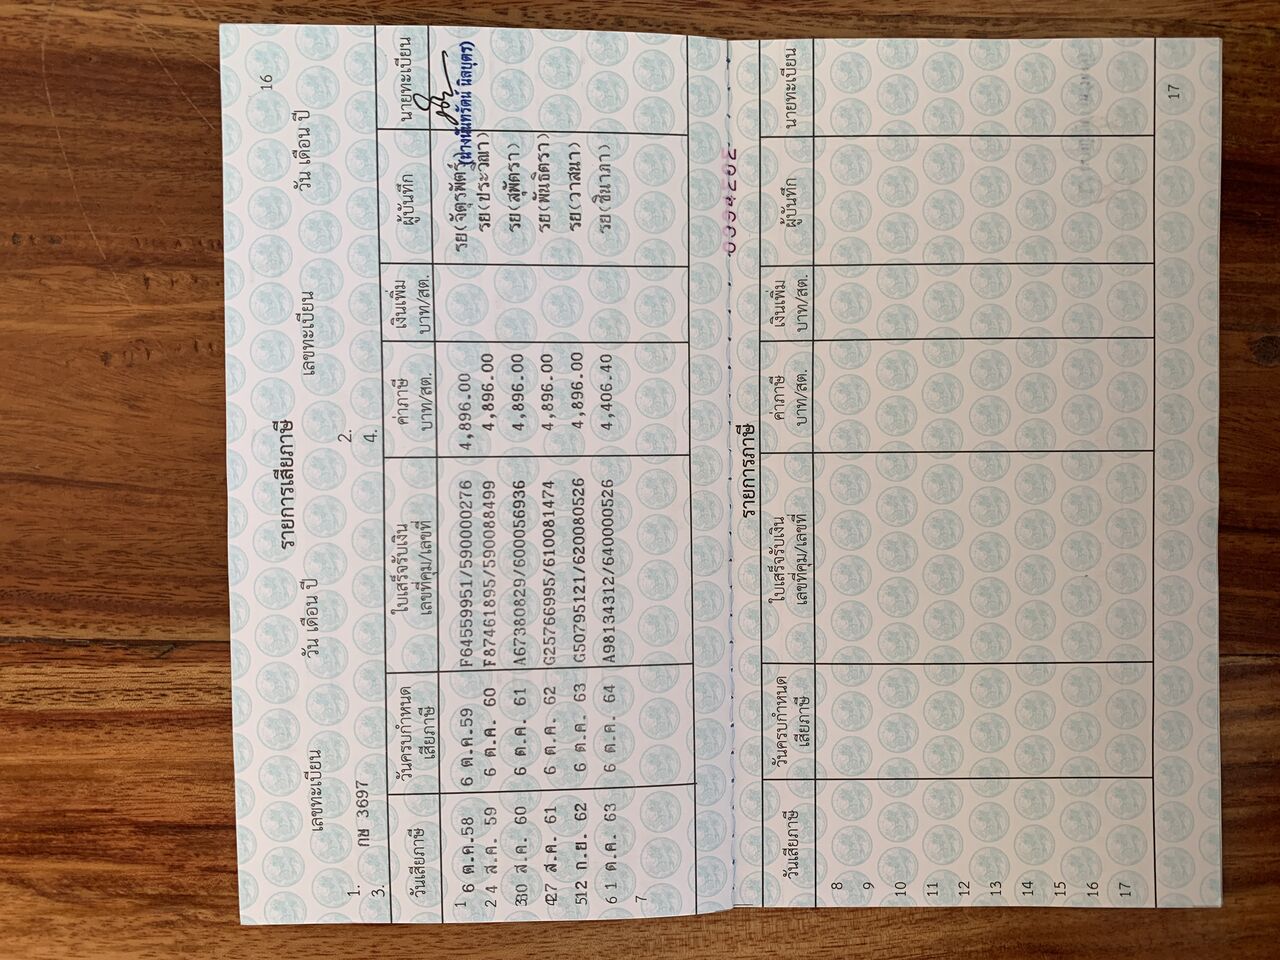 16
รายการเสียภาษี
เลขทะเบียน วัน เดือน ปี เลขทะเบียน วัน เดือน ปี
1. 2.
กษ 3697
3. 4.
วันเสียภาษี วันครบกำหนดเสียภาษี ใบเสร็จรับเงิน เลขที่คุม/เลขที่ ค่าภาษี บาท/สต. เงินเพิ่ม บาท/สต. ผู้บันทึก นายทะเบียน
1 6 ต.ค.58 6 ต.ค.59 F64559951/590000276 4,896.00 รย(จัตุรพัตร์)
(นางนันทรัตน์ นิลบุตร)
2 4 ส.ค. 59 6 ต.ค. 60 F87461895/590088499 4,896.00 รย(ประวีณา)
330 ส.ค. 60 6 ต.ค. 61 A67380829/600056936 4,896.00 รย(สุพัตรา)
427 ส.ค. 61 6 ต.ค. 62 G25766995/610081474 4,896.00 รย(พันธิตรา)
512 ก.ย. 62 6 ต.ค. 63 G50795121/620080526 4,896.00 รย(วาสนา)
6 1 ต.ค. 63 6 ต.ค. 64 A98134312/640000526 4,406.40 รย(ชินาภา)
7
รายการภาษี
วันเสียภาษี วันครบกำหนดเสียภาษี ใบเสร็จรับเงิน เลขที่คุม/เลขที่ ค่าภาษี บาท/สต. เงินเพิ่ม บาท/สต. ผู้บันทึก นายทะเบียน
8
9
10
11
12
13
14
15
16
17
17